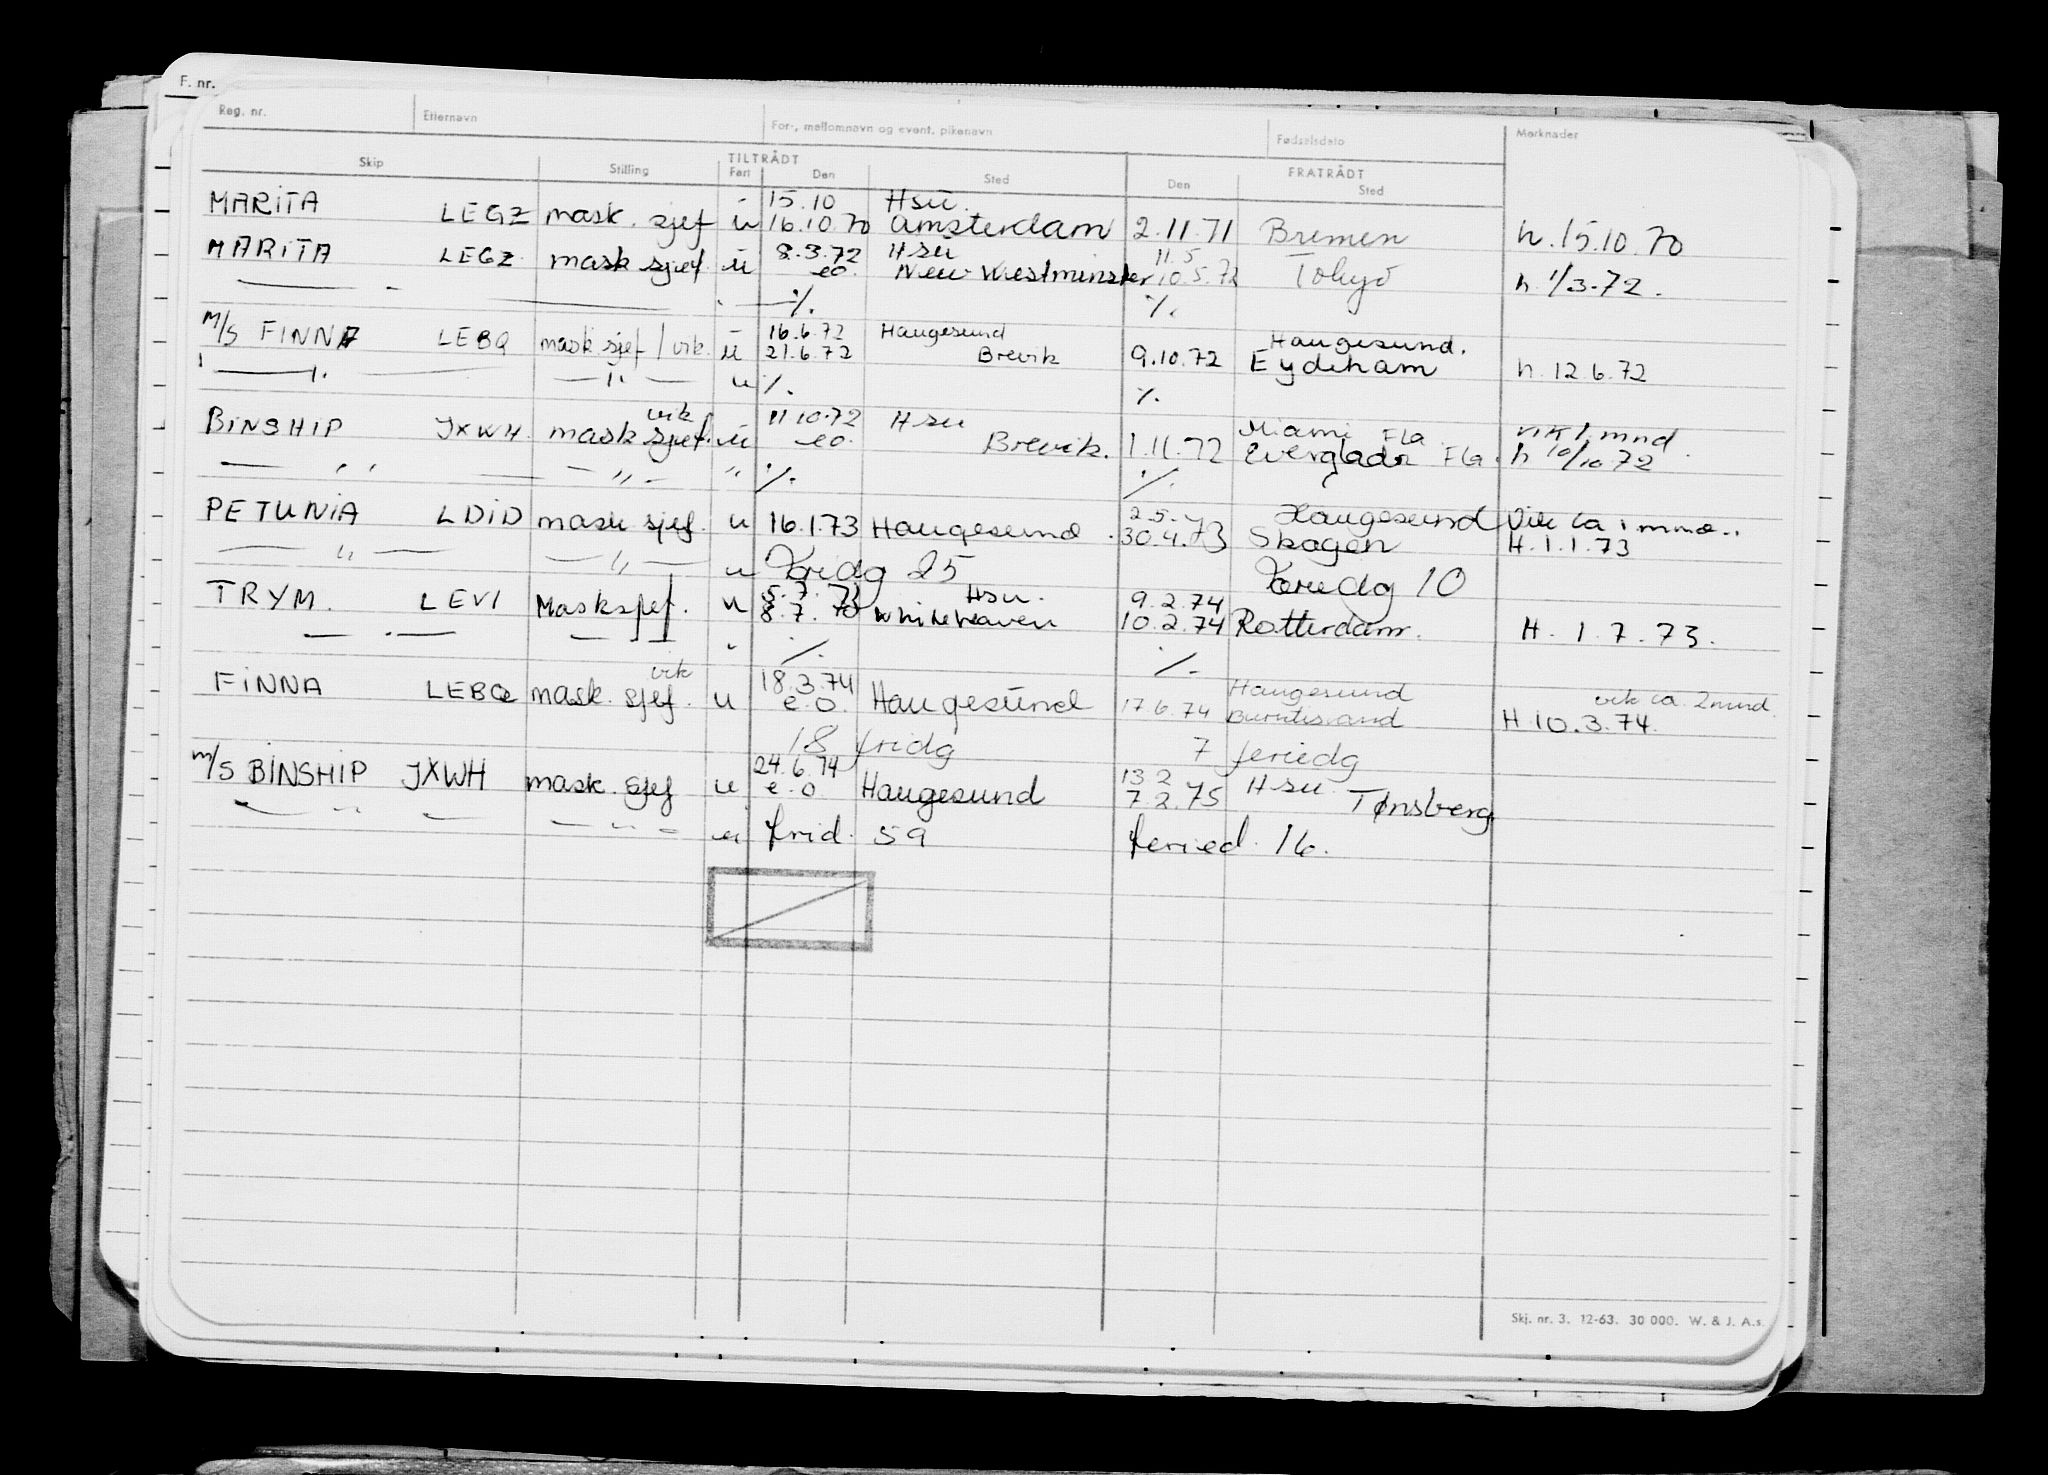 F. nr.
Reg. nr. Etternavn For-, mellomnavn og event. pikenavn Fødselsdato Merknader
Skip Stilling TILTRÅDT Fart Den Sted FRATRÅDT Den Sted
15.10 Hsu.
MARITA LEGZ mask. sjef u 16.10.70 Amsterdam 2.11.71 Bremen h. 15.10.70
8.3.72 Hsu 11.5
MARITA LEGZ mask sjef u eo. New Westminster 10.5.72 Tokyo h. 1/3-72.
— " — ./. ./.
16.6.72 Haugesund Haugesund.
M/S FINNA LEBQ mask sjef / vik. u 21.6.72 Brevik 9.10.72 Eydehavn h. 12.6.72
— " — — " — u ./. ./.
vik 11.10.72 Hsu Miami Fla. vik 1 mnd.
BINSHIP JXWH. mask sjef. u eo. Brevik. 1.11.72 Everglades Fla. h 10/10 72
— " — — " — " ./. ./.
2.5. Haugesund Vik ca 1 mnd..
PETUNIA LDID mask sjef. u 16.1.73 Haugesund. 30.4.73 Skagen H. 1.1.73
— " — — " — u Fridg 25 Feriedg 10
5.7.73 Hsu. 9.2.74
TRYM. LEVI Masksjef. u 8.7. Whitehaven 10.2.74 Rotterdam. H. 1.7.73.
— " — — " — " ./. ./.
vik 18.3.74 Haugesund vik ca. 2 mnd.
FINNA LEBQ mask. sjef. u e.o. Haugesund 17.6.74 Burntisland H. 10.3.74.
18 fridg 7 feriedg
24.6.74 13 2 Hsu.
m/S BINSHIP JXWH mask. sjef u e.o Haugesund 7 2.75 Tønsberg
— " — — " — u frid. 59 feried. 16.
Skj. nr. 3. 12-63. 30 000. W. & J. A.s.